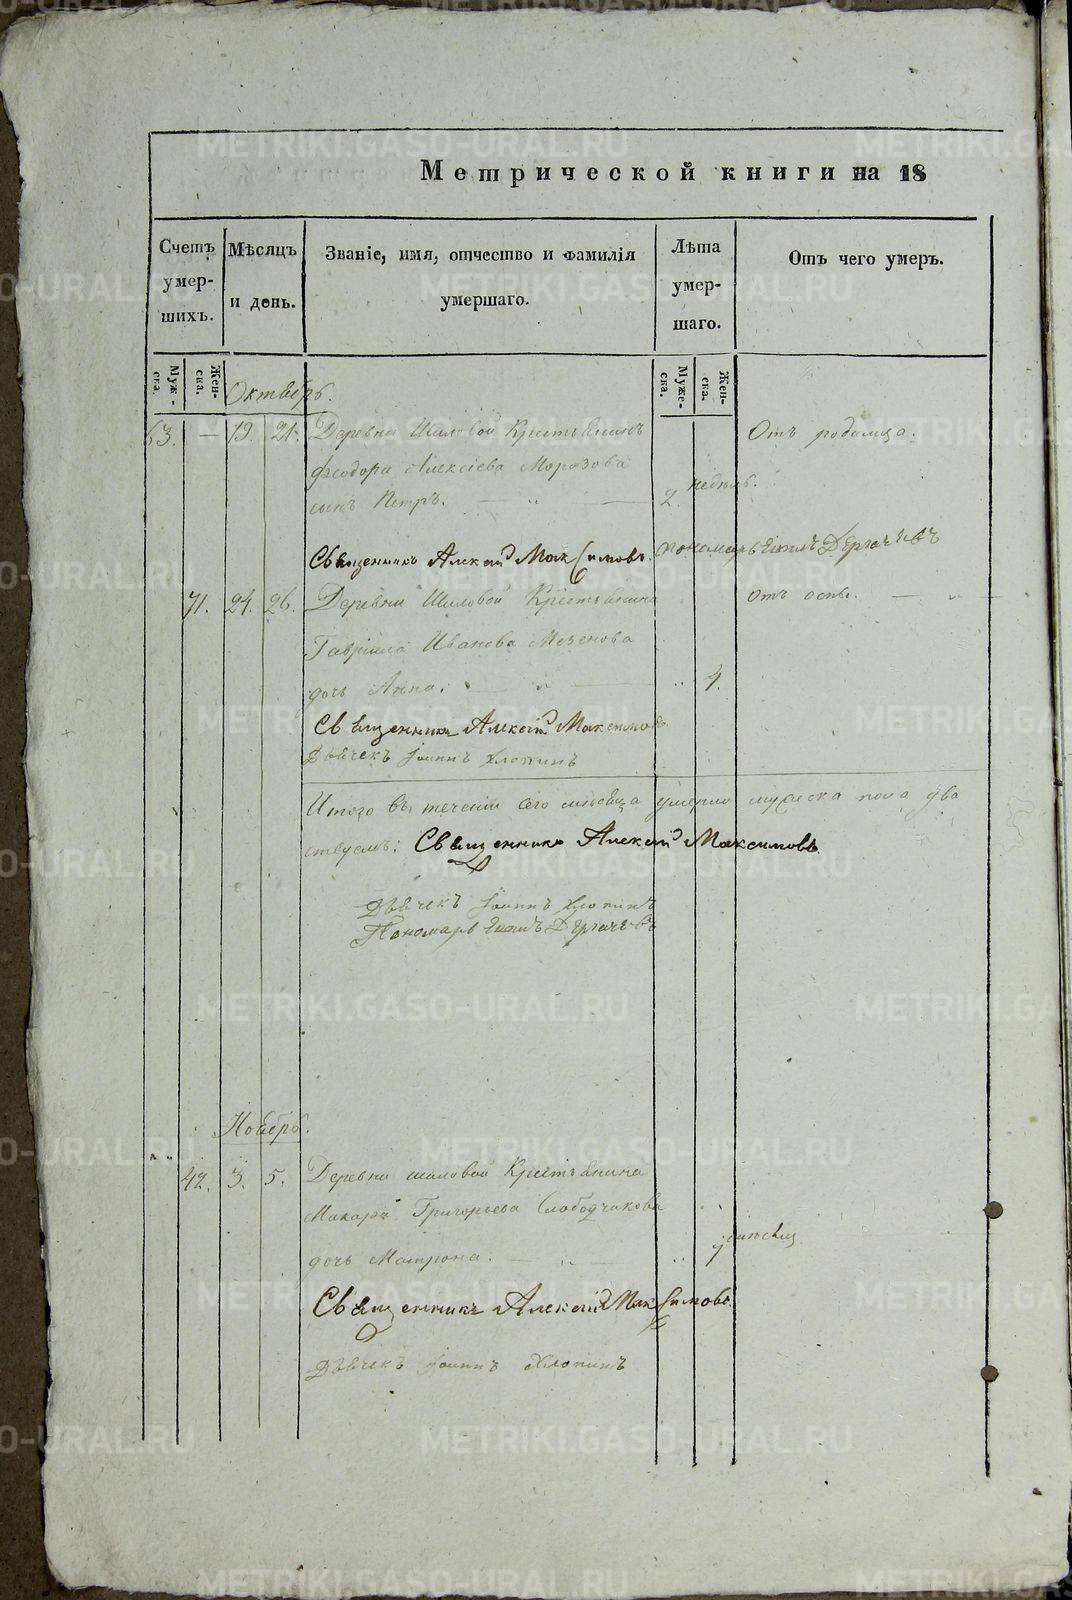 Метрической книги на 18
Счетъ умер- шихъ.
Мѣсяцъ и день.
Званіе, имя, отчество и фамилія умершаго.
Лѣта умер- шаго.
Отъ чего умеръ.
Муж- ска.
Жен- ска.
Муже- ска.
Жен- ска.
Октябрь.
63. — 19. 21. Деревни Шиловой Крестьянина Отъ родимца.
Феодора Алексіева Морозова
сынъ Петръ. 2 недѣль.
Священникъ Алексій Максимовъ. Пономарь
71. 24. 26. Деревни Шиловой Крестьянина Отъ оспы.
Гавріила Иванова Мезенова
дочь Анна. 4.
Священникъ Алексій Максимовъ
Дьячекъ Іоаннъ Хлопинъ
Итого въ теченіи сего мѣсяца умерло мужеска пола два
Священникъ Алексій Максимовъ
Дьячекъ Іоаннъ Хлопинъ
Пономарь
Ноябрь.
42. 3. 5. Деревни шиловой Крестьянина
Макара Григорьева Слободчикова
дочь Матрона.
Священникъ Алексій Максимовъ
Дьячекъ Іоаннъ Хлопинъ
METRIKI.GASO-URAL.RU